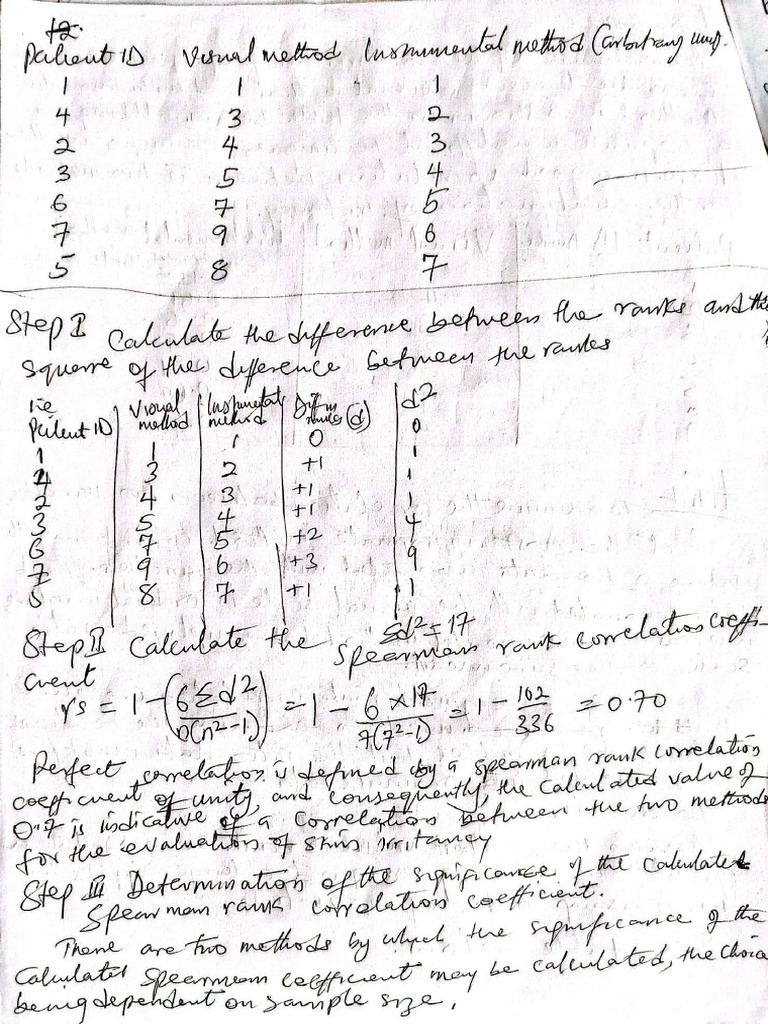 Patient ID Visual method Instrumental method (arbitrary unit).
1 1 1
4 3 2
2 4 3
3 5 4
6 7 5
7 9 6
5 8 7
Step I Calculate the difference between the ranks and the
square of the difference between the ranks
i.e
Patient ID Visual method Instrumental method Diff in ranks (d) d2
1 1 1 0 0
4 3 2 +1 1
2 4 3 +1 1
3 5 4 +1 1
6 7 5 +2 4
7 9 6 +3 9
5 8 7 +1 1
Σd2 = 17
Step II Calculate the Spearman rank correlation coeffi-
cient
rs = 1 - (6Σd2 / n(n2-1)) = 1 - 6×17 / 7(72-1) = 1 - 102/336 = 0.70
Perfect correlation is defined by a spearman rank correlation
coefficient of unity, and consequently, the calculated value of
0.7 is indicative of a correlation between the two methods
for the evaluation of skin irritancy
Step III Determination of the significance of the calculated
Spearman rank correlation coefficient.
There are two methods by which the significance of the
Calculated Spearman coefficient may be calculated, the choice
being dependent on sample size.